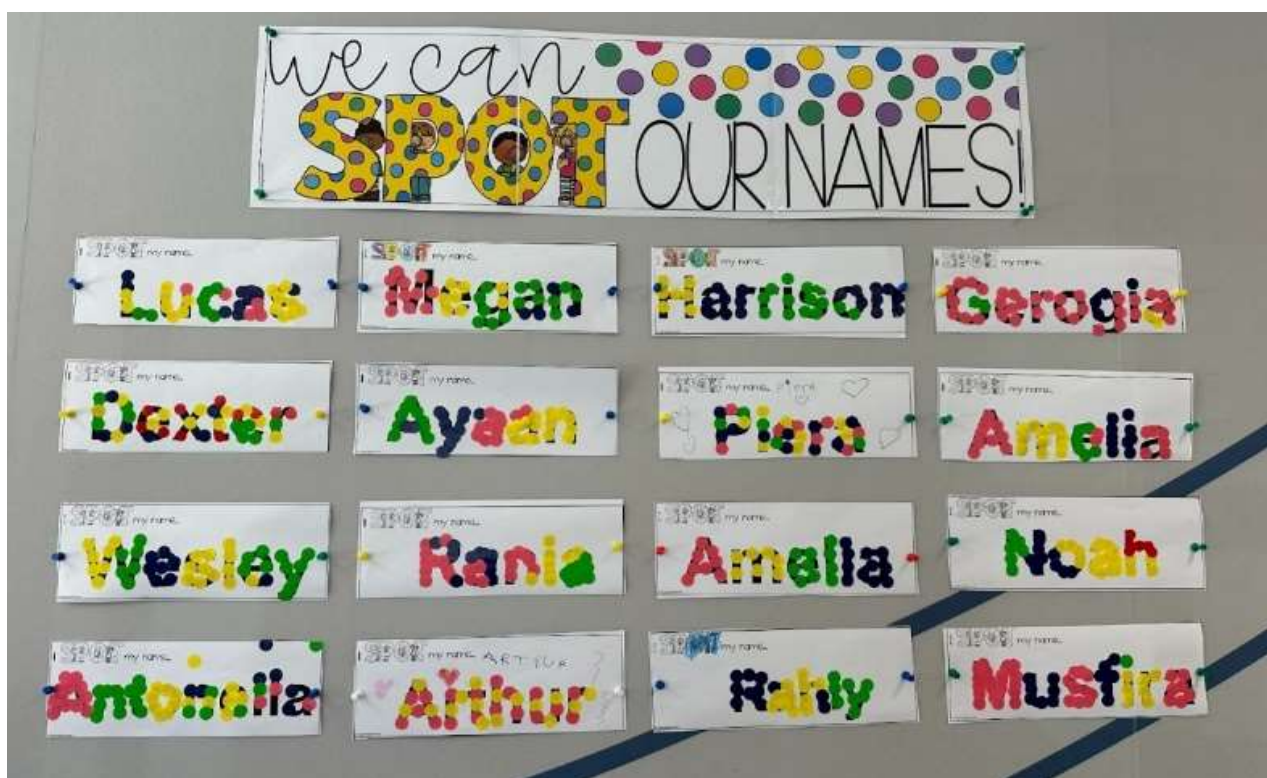 we can
SPOT OUR NAMES!
SPOT my name...
Lucas
SPOT my name...
Megan
SPOT my name...
Harrison
SPOT my name...
Gerogia
SPOT my name...
Dexter
SPOT my name...
Ayaan
SPOT my name...
Piera
SPOT my name...
Amelia
SPOT my name...
Wesley
SPOT my name...
Rania
SPOT my name...
Amelia
SPOT my name...
Noah
SPOT my name...
Antonella
SPOT my name... ARTHUR
Arthur
SPOT my name...
Rahly
SPOT my name...
Musfira